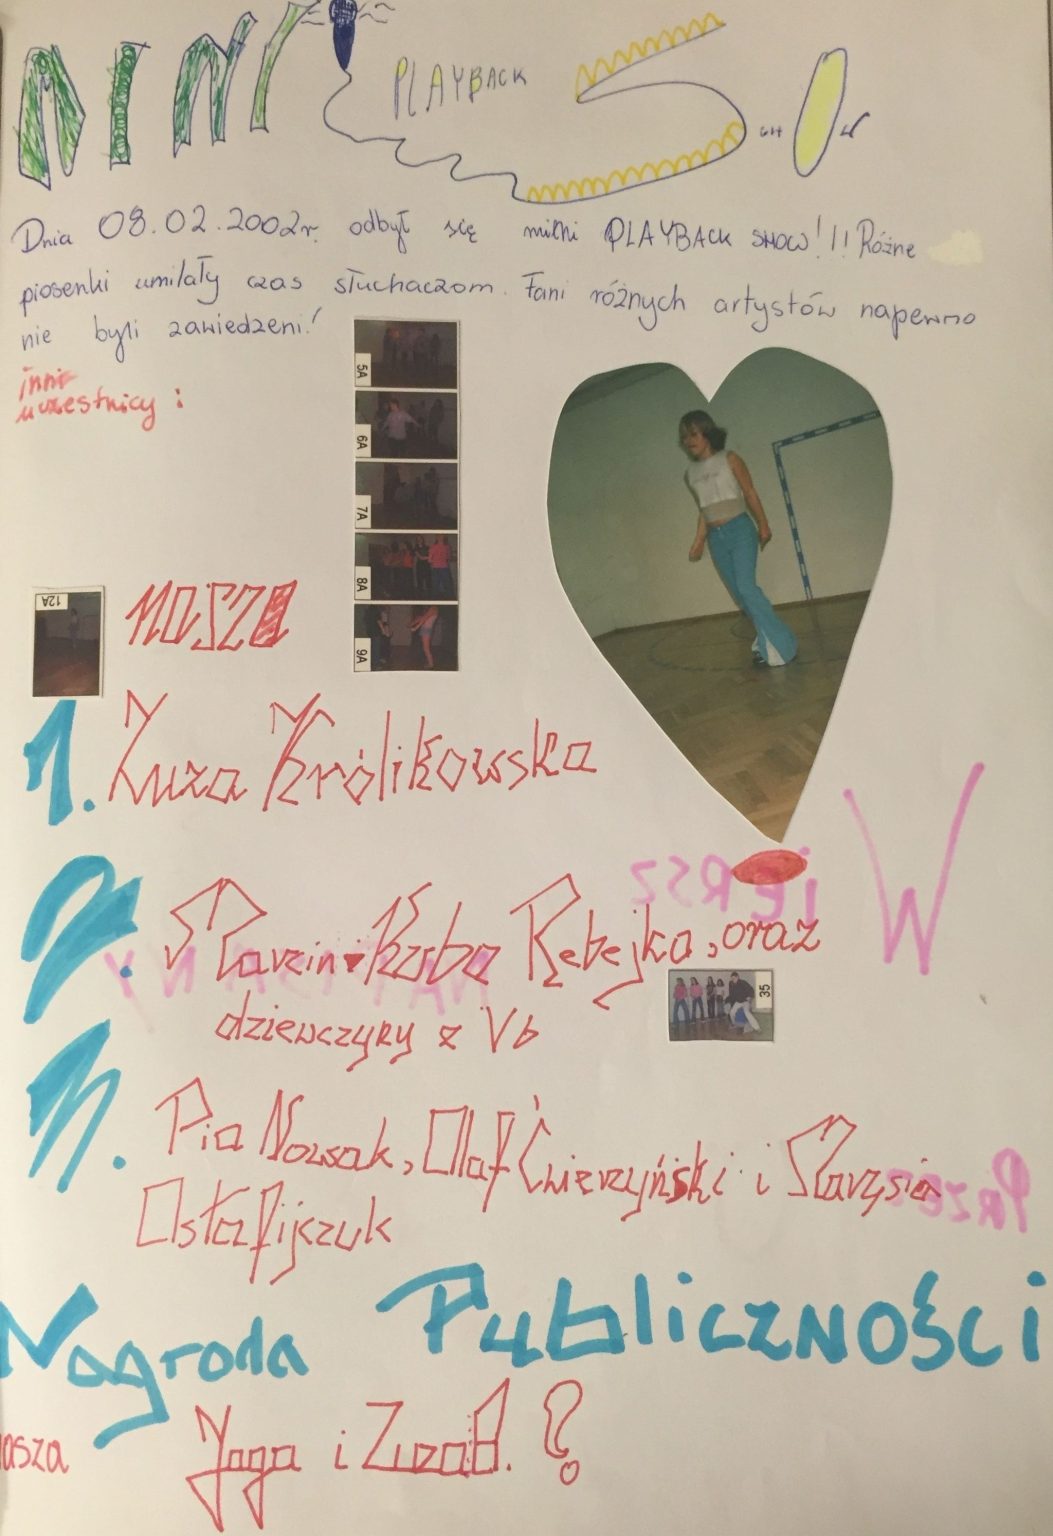 MINI PLAYBACK SHOW
Dnia 08.02.2002r. odbył się miłni PLAYBACK SHOW!!! Różne
piosenki umilały czas słuchaczom. Fani różnych artystów napewno
nie byli zawiedzeni!
inni
uczestnicy:
5A
6A
7A
8A
9A
12A
nasza
1. Zuza Królikowska
2. Marcin i Kuba Rębejko, oraz
dziewczyny z Vb
35
3. Pia Nowak, Olaf Ćwierzyński i Marysia
Ostafijczuk
Nagroda Publiczności
nasza Jaga i Zuza B.?
W
iERSZ
NAPISANY
PRZEZ